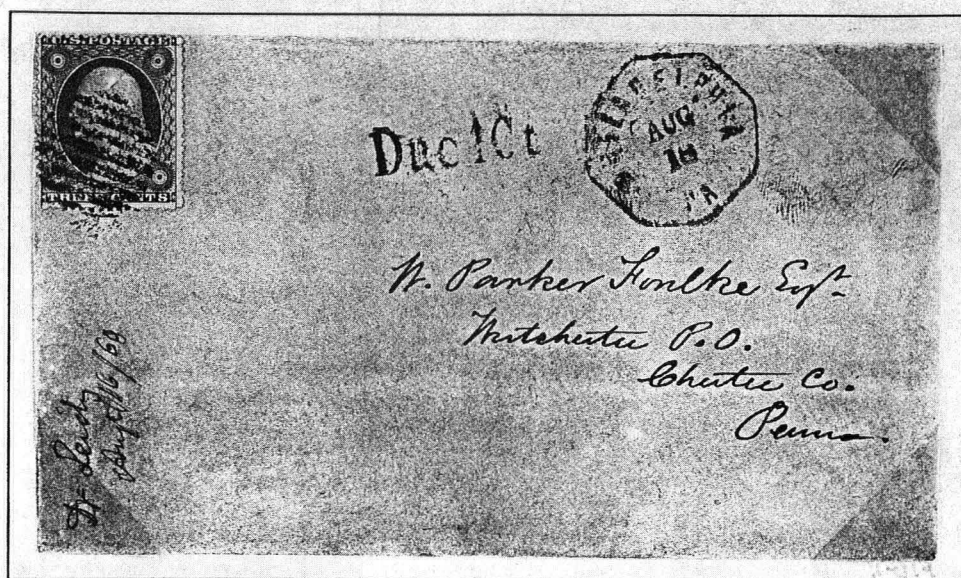 U.S. POSTAGE
THREE CENTS
Due 1 Ct
PHILADELPHIA
AUG
18
PA
W. Parker Foulke Esqr.
Westchester P.O.
Chester Co.
Penna.
Dr Leidy
Aug. 16/60